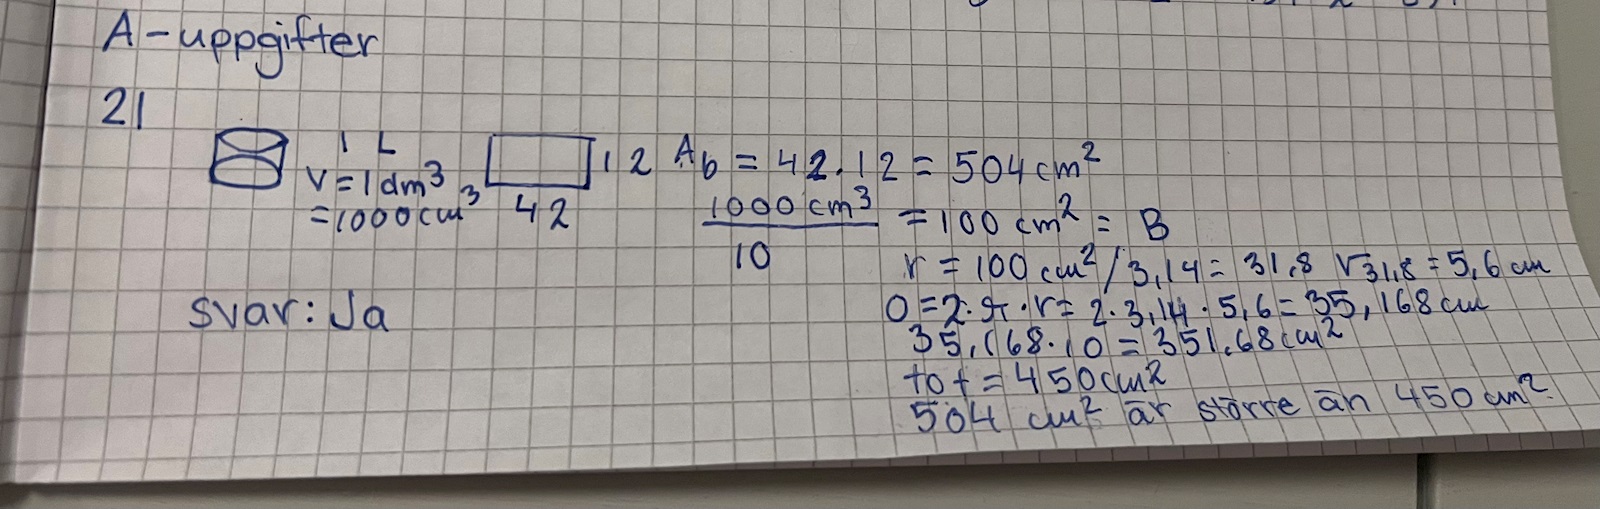 A-uppgifter
21
1 L
V=1dm³
=1000cm³
12
42
Ab = 42.12 = 504cm²
1000 cm³ / 10 = 100 cm² = B
r = 100 cm²/3,14 = 31,8 √31,8 = 5,6 cm
O=2·π·r= 2·3,14·5,6=35,168cm
35,168·10=351,68cm²
tot=450cm²
504 cm² är större än 450 cm²
svar: Ja